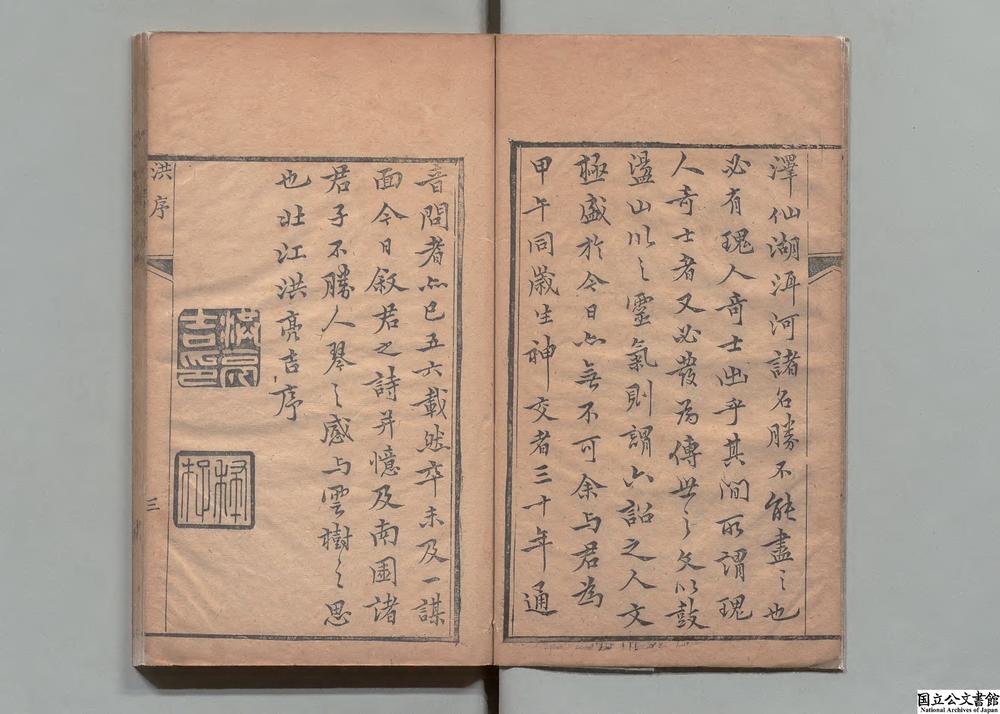 澤仙湖洱河諸名勝不能盡之也
必有瑰人奇士出乎其間所謂瑰
人奇士者又必發為傳世之文以鼓
盪山川之靈氣則謂六詔之人文
極盛於今日亦無不可余与君為
甲午同歲生神交者三十年通
音問者亦已五六載然卒未及一謀
面今日敘君之詩并憶及南園諸
君子不勝人琴之感与雲樹之思
也北江洪亮吉序
洪亮吉印
洪序
三
国立公文書館
National Archives of Japan